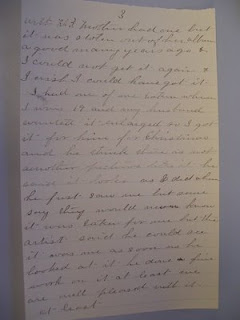 3
with it. Mother had one but
it was stolen out of her album
a good many years ago &
I could not get it again &
I wish I could have got it.
I had one of me taken when
I were 17 and my husband
wanted it enlarged so I got
it for him for Christmas
and he think there is not
another picture like it be
cause it looks as I did when
he first saw me but some
say they would never know
it were taken for me but the
artist said he could see
it were me as soon as he
looked at it he done fine
work on it at least we
are well pleased with it
at least